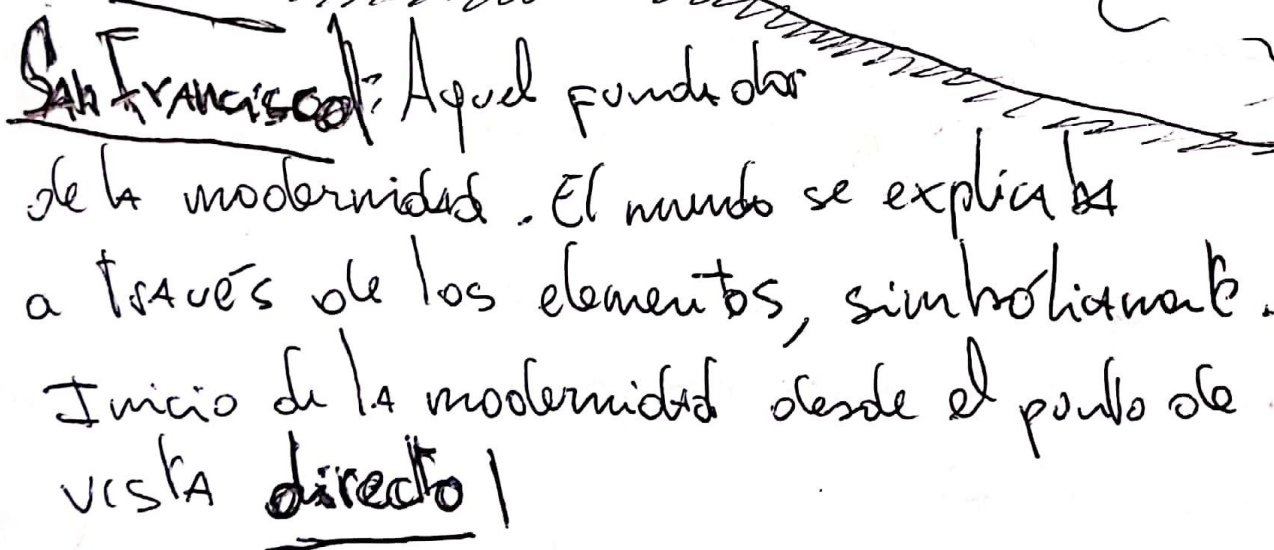 San Francisco: Aquel fundador
de la modernidad. El mundo se explicaba
a través de los elementos, simbólicamente.
Inicio de la modernidad desde el punto de
vista directo